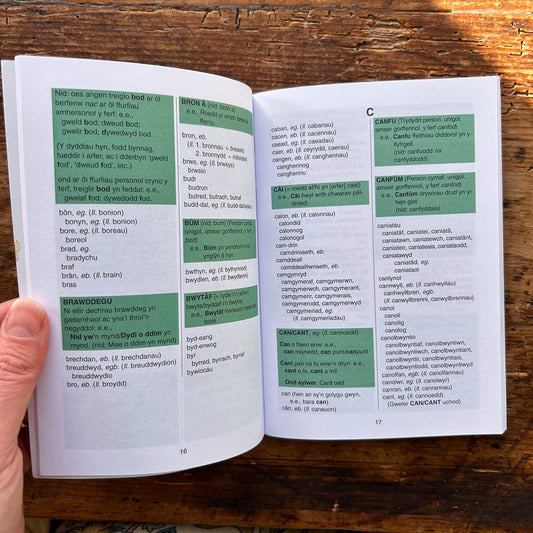 Nid: oes angen treiglo bod ar ôl
berfenw nac ar ôl ffurfiau
amhersonol y ferf: e.e.,
gweld bod; dweud bod;
gwelir bod; dywedwyd bod.
(Y dyddiau hyn, fodd bynnag,
tueddir i arfer, ac i dderbyn 'gweld
fod', 'dweud fod', etc.)
ond ar ôl ffurfiau personol cryno y
ferf, treiglir bod yn feddal: e.e.,
gwelaf fod; Dywedodd fod.
bôn, eg. (ll. bonion)
bonyn, eg. (ll. bonion)
bore, eg. (ll. boreau)
boreol
brad, eg.
bradychu
braf
brân, eb. (ll. brain)
bras
BRAWDDEGU
Ni ellir dechrau brawddeg yn
gadarnhaol ac yna'i throi'n
negyddol: e.e.,
Nid yw'n mynd/Dydi o ddim yn
mynd. (nid: Mae o ddim yn mynd)
brechdan, eb. (ll. brechdanau)
breuddwyd, egb. (ll. breuddwydion)
breuddwydio
bro, eb. (ll. broydd)
BRON Â (nid: bron i)
e.e., Roedd yr eneth bron â
fferru.
bron, eb.
(ll. 1. bronnau = breasts,
2. bronnydd = hillsides)
brws, eg. (ll. brwsys)
brwsio
budr
budron
butred, butrach, butraf
budd-dal, eg. (ll. budd-daliadau)
BÛM (nid: bum) (Person cyntaf,
unigol, amser gorffennol, y ferf
bod)
e.e., Bûm yn pendroni'n hir
ynglŷn â hyn.
bwthyn, eg. (ll. bythynnod)
bwydlen, eb. (ll. bwydlenni)
BWYTÂF
bwyta/bwytaf
e.e., Bwytâf frecwast mawr bob
bore.
byd-eang
byd-enwog
byr
byrred, byrrach, byrraf
bywiocáu
16
C
caban, eg. (ll. cabanau)
cacen, eb. (ll. cacennau)
caead, eg. (ll. caeadau)
caer, eb. (ll. ceyrydd, caerau)
cangen, eb. (ll. canghennau)
canghennog
canghennu
CÂI (= roedd ef/hi yn [arfer] cael)
e.e., Câi hwyl wrth chwarae pêl-
droed.
calon, eb. (ll. calonnau)
calondid
calonnog
calonogol
cam-drin
camdriniaeth, eb.
camddeall
camddealltwriaeth, eb.
camgymryd
camgymeraf, camgymerwn,
camgymeri, camgymerwch,
camgymer, camgymerant,
camgymerir, camgymerais,
camgymerodd, camgymerwyd
camgymeriad, eg.
(ll. camgymeriadau)
CAN/CANT, eg. (ll. cannoedd)
Can o flaen enw: e.e.,
can mlynedd, can punt/canpunt
Cant pan na fo enw'n dilyn: e.e.,
cant o lo, cant a mil
Ond sylwer: Cant oed
can (hen air sy'n golygu gwyn,
e.e., bara can)
cân, eb. (ll. caneuon)
CANFU (Trydydd person, unigol,
amser gorffennol, y ferf canfod)
e.e., Canfu ffeithiau diddorol yn y
llyfrgell.
(nid: canfuodd na
canfyddodd)
CANFÛM (Person cyntaf, unigol,
amser gorffennol, y ferf canfod)
e.e., Canfûm drysorau drud yn yr
hen gist.
(nid: canfyddais)
caniatáu
caniatâf, caniatei, caniatâ,
caniatawn, caniatewch, caniatânt,
caniateir, caniateais, caniataodd,
caniatawyd
caniatâd, eg.
caniataol
canlynol
cannwyll, eb. (ll. canhwyllau)
canhwyllbren, egb.
(ll. canwyllbrenni, canwyllbrennau)
canol
canoli
canolig
canolog
canolbwyntio
canolbwyntiaf, canolbwyntiwn,
canolbwynti, canolbwyntiwch,
canolbwyntia, canolbwyntiant,
canolbwyntir, canolbwyntiais,
canolbwyntiodd, canolbwyntiwyd
canolfan, egb. (ll. canolfannau)
canolwr, eg. (ll. canolwyr)
canran, eb. (ll. canrannau)
canrif, eb. (ll. canrifoedd)
cant, eg. (ll. cannoedd)
(Gweler CAN/CANT uchod)
17